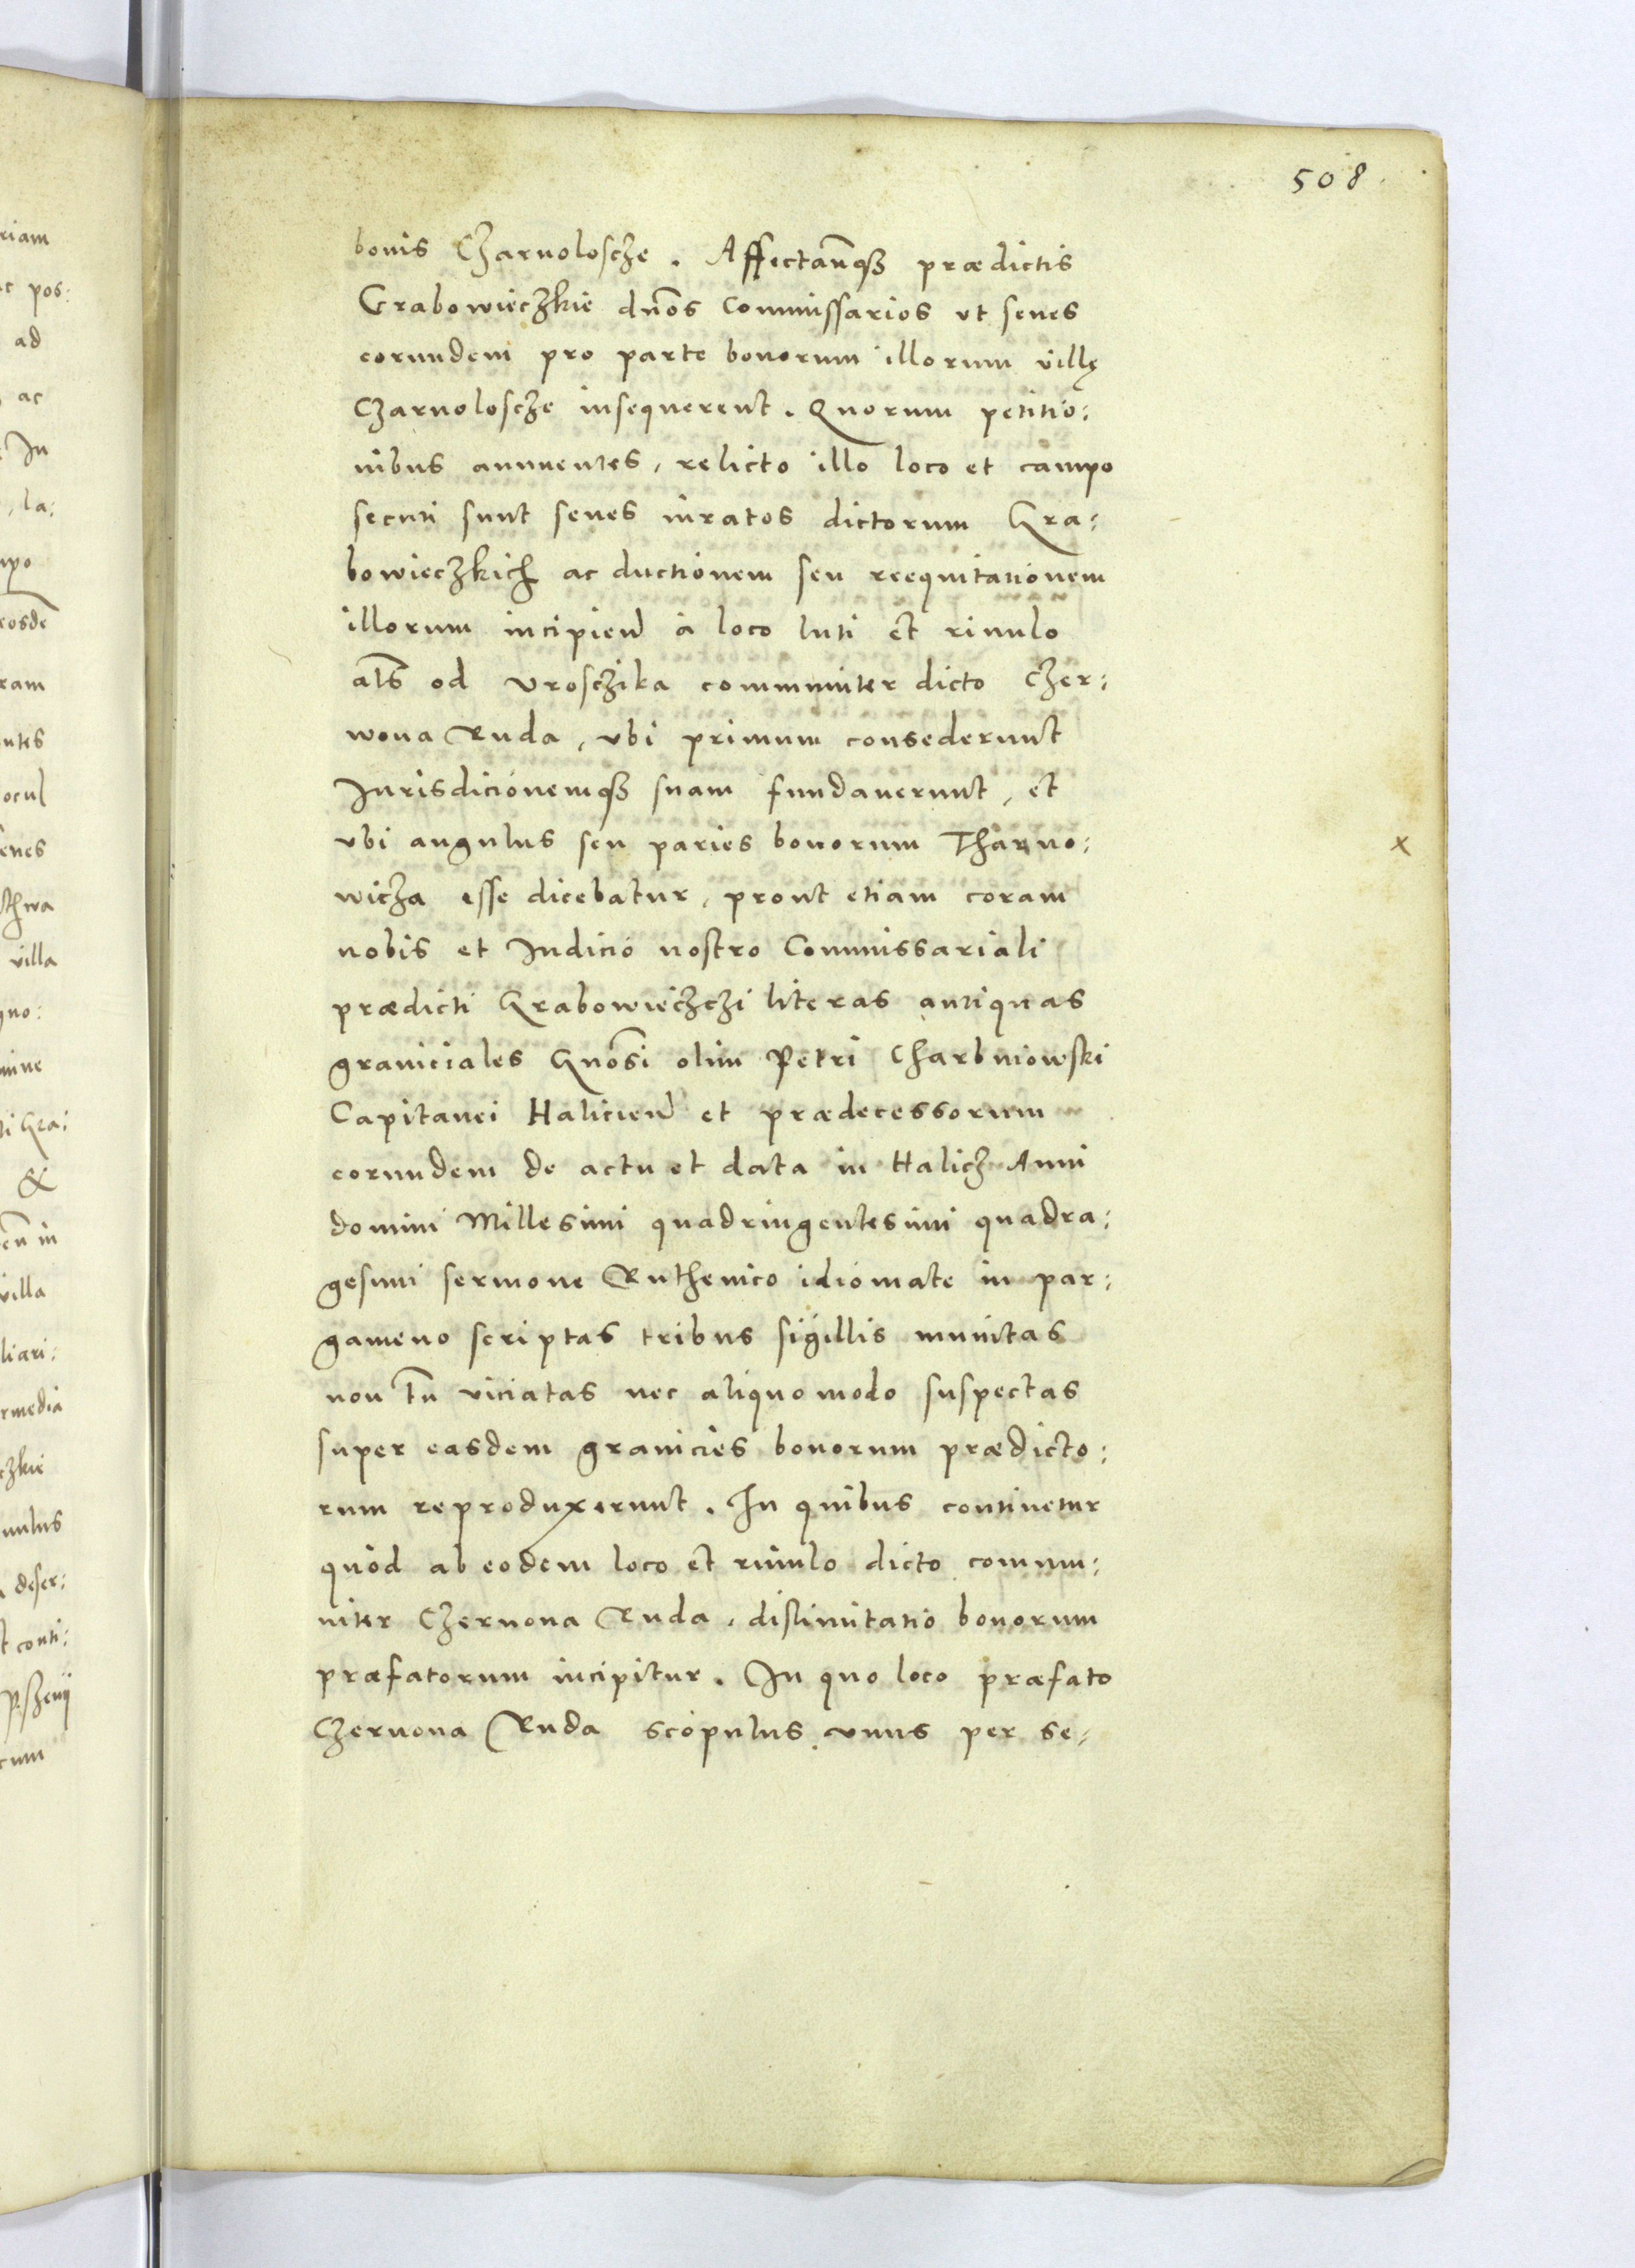 508
bonis Czarnoloscze. Affectan̄q₃ prædictis
Grabowieczkie dn̄os Commissarios vt senes
eorundem pro parte bonorum illorum villę
Czarnoloscze insequerent. Quorum petitio:
nibus annuentes, relicto illo loco et campo
secuti sunt senes iuratos dictorum Gra:
bowieczkich ac ductionem seu reequitationem
illorum incipien̄ à loco luti et riuulo
al̄s od vroschika communiter dicto Czer:
wona Ruda, vbi primum consederunt
Jurisdicionemq₃ suam fundauerunt, et
vbi angulus seu paries bonorum Tharno:
wicza esse dicebatur, prout etiam coram
nobis et Iudicio nostro Commissariali
prædicti Grabowieczczi literas antiquas
graniciales Gn̄osi olim Petri Charbniowski
Capitanei Halicien̄ et prædecessorum
eorundem de actu et data in Halicz Anni
domini Millesimi quadringentesimi quadra:
gesimi sermone Ruthenico idiomate in par:
gameno scriptas tribus sigillis munitas
non tn̄ viciatas nec aliquo modo suspectas
super easdem granicies bonorum prædicto:
rum reproduxerunt. In quibus continetur
quòd ab eodem loco et riuulo dicto commu:
niter Czernona Ruda, dislimitatio bonorum
præfatorum incipitur. In quo loco præfato
Czernona Ruda scopulus vnus per se,
x
riam
pos:
ad
ac
In
la:
ram
ocul
villa
&
villa
liari:
rmedia
deser:
conti: